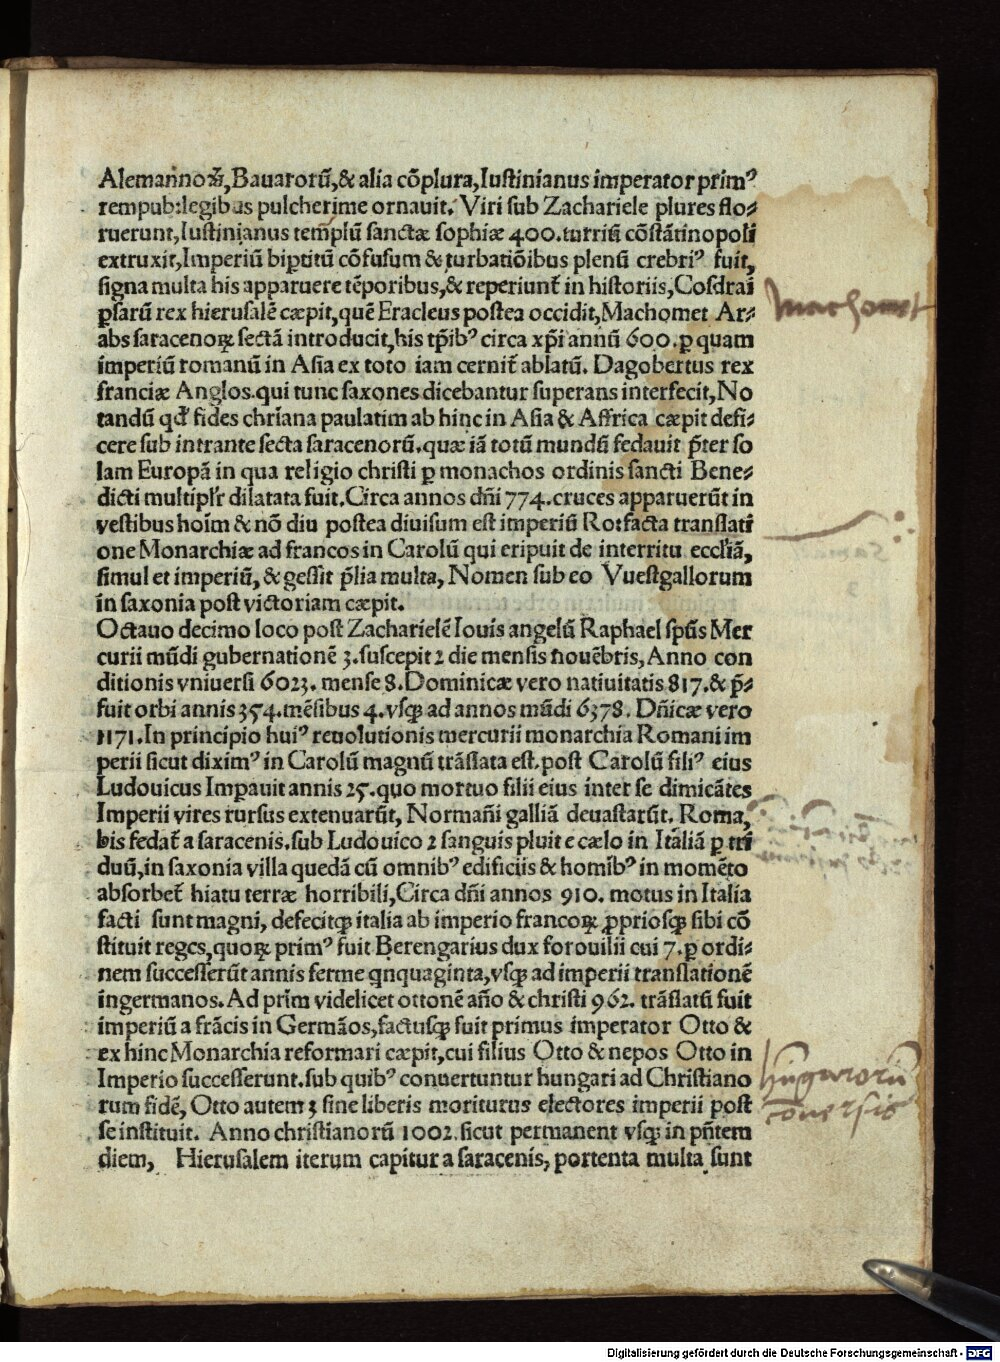 Alemannoꝝ, Bauarorū, & alia cōplura, Iustinianus imperator primꝰ
rempub: legibus pulcherime ornauit. Viri sub Zachariele plures flo⸗
ruerunt, Iustinianus templū sanctæ sophiæ 400. turriū cōstātinopoli
extruxit, Imperiū biꝑtitū cōfusum & turbatiōibus plenū crebriꝰ fuit,
signa multa his apparuere tēporibus, & reperiunt̄ in historiis, Cosdrai
ꝑsarū rex hierusalē cæpit, quē Eracleus postea occidit, Machomet Ar⸗
abs saracenoꝝ sectā introducit, his tꝑibꝰ circa xp̄i annū 600. ꝑ quam
imperiū romanū in Asia ex toto iam cernit̄ ablatū. Dagobertus rex
franciæ Anglos. qui tunc saxones dicebantur superans interfecit, No
tandū qđ fides chriana paulatim ab hinc in Asia & Affrica cæpit defi⸗
cere sub intrante secta saracenorū. quæ iā totū mundū fedauit p̄ter so
lam Europā in qua religio christi ꝑ monachos ordinis sancti Bene⸗
dicti multipl'r dilatata fuit. Circa annos dn̄i 774. cruces apparuerūt in
vestibus hoīm & nō diu postea diuisum est imperiū Ro: facta translati
one Monarchiæ ad francos in Carolū qui eripuit de interritu eccl'iā,
simul et imperiū, & gessit p̄lia multa, Nomen sub eo Vuestgallorum
in saxonia post victoriam cæpit.
Octauo decimo loco post Zacharielē Iouis angelū Raphael sp̄us Mer
curii mūdi gubernationē 3. suscepit 2 die mensis nouēbris, Anno con
ditionis vniuersi 6023. mense 8. Dominicæ vero natiuitatis 817. & p̄⸗
fuit orbi annis 354. mēsibus 4. vsqꝫ ad annos mūdi 6378. Dn̄icæ vero
1171. In principio huiꝰ reuolutionis mercurii monarchia Romani im
perii sicut diximꝰ in Carolū magnū trāslata est. post Carolū filiꝰ eius
Ludouicus Imꝑauit annis 25. quo mortuo filii eius inter se dimicātes
Imperii vires rursus extenuarūt, Normañi galliā deuastarūt. Roma,
bis fedat̄ a saracenis. sub Ludouico 2 sanguis pluit e cælo in Italiā ꝑ tri
duū, in saxonia villa quedā cū omnibꝰ edificiis & homībꝰ in momēto
absorbet̄ hiatu terræ horribili, Circa dn̄i annos 910. motus in Italia
facti sunt magni, defecitqꝫ italia ab imperio francoꝝ ꝓpriosqꝫ sibi cō
stituit reges, quoꝝ primꝰ fuit Berengarius dux forouilii cui 7. ꝑ ordi⸗
nem successerūt annis ferme qnquaginta, vsqꝫ ad imperii translationē
ingermanos. Ad prim̄ videlicet ottonē año & christi 962. trāslatū fuit
imperiū a frācis in Germāos, factusqꝫ fuit primus imperator Otto &
ex hinc Monarchia reformari cæpit, cui filius Otto & nepos Otto in
Imperio successerunt. sub quibꝰ conuertuntur hungari ad Christiano
rum fidē, Otto autem 3 sine liberis moriturus electores imperii post
se instituit. Anno christianorū 1002. sicut permanent vsqꝫ in pn̄tem
diem, Hierusalem iterum capitur a saracenis, portenta multa sunt
Machomet
Hungarorū
cōuersio
Digitalisierung gefördert durch die Deutsche Forschungsgemeinschaft - DFG